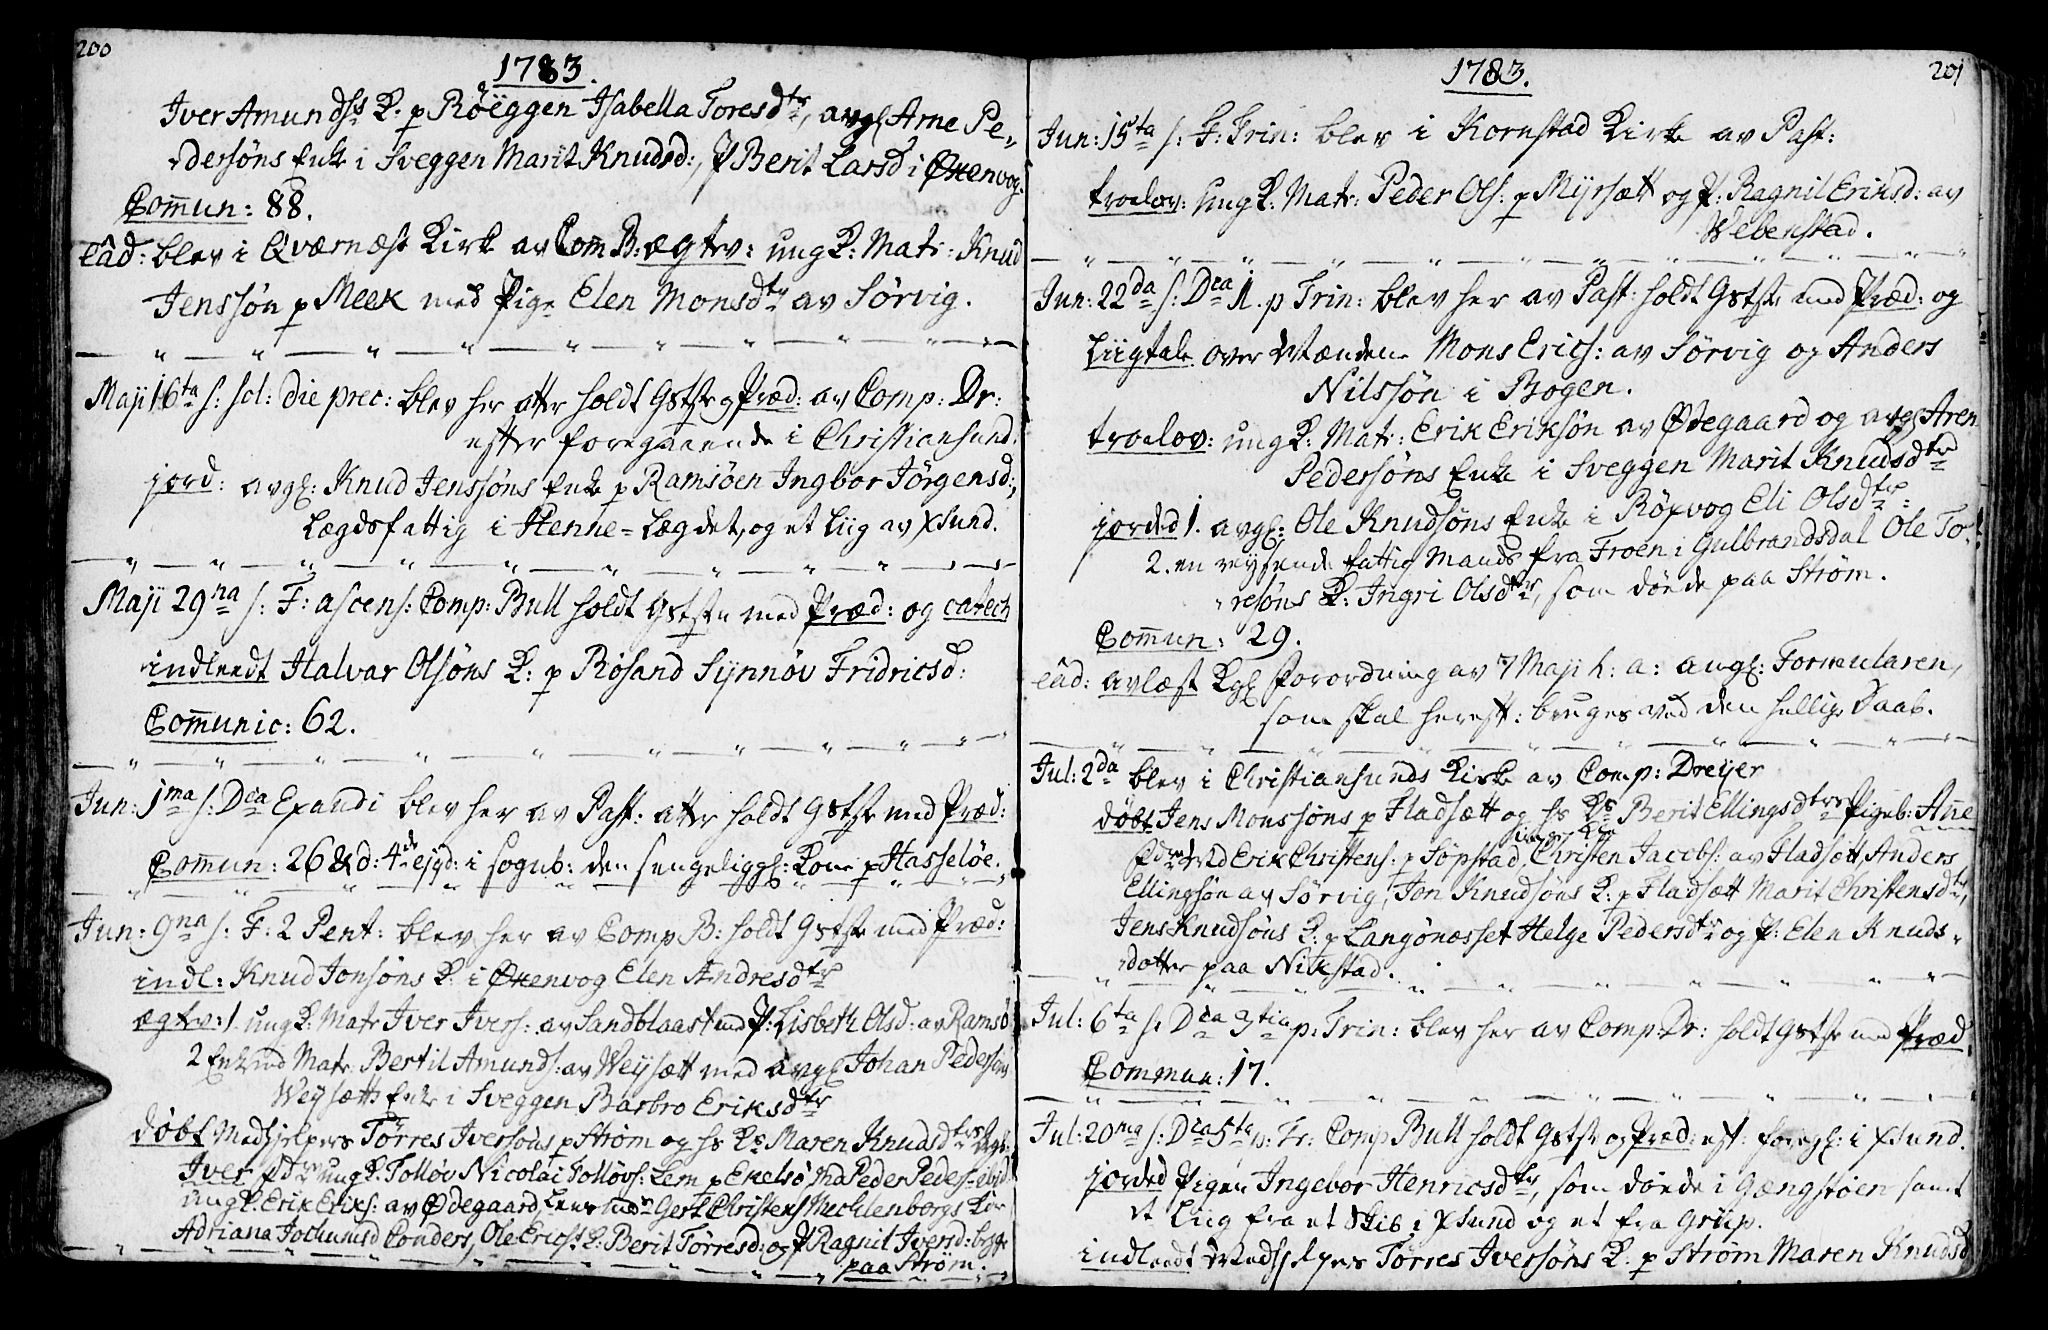 200
1783.
Iver Amunds: K. p Röeggen Isabella Toresdtr, avgl Arne Pe-
dersöns Enke i Sveggen Marit Knudsd:, P Berit Larsd i Øxenvog.
Com̄un: 88.
eâd: blev i Qværnæss Kirke av Com̄ B: ægtev: ung K: Mats: Knud
Jenssön p Meek med Pige Elen Monsdtr av Sörvig.
Maji 16ta s: sol: die prec: blev her atter holdt Gstste og Præd: av Comp: Dr:
efter foregaaende i Christiansund.
jord: avgl: Knud Jenssöns Enke p Ramsöen Ingbor Jörgensd:,
Lægdsfattig i Henne-Lægdet, og et Liig av Xsund.
Maji 29na s: F: ascens: Comp: Bull holdt Gstste med Præd: og catech
indleedt Halvar Olsöns K: p Rösand Synnöv Fridricsd:
Com̄unic: 62.
Jun: 1ma s: Dca Exaudi blev her av Past: atter holdt Gstste med Præd:
Com̄un: 26 & d: 4de ejgd: i sognb: den sengeliggl: Kone p Hasselöe.
Jun: 9na s: F: 2 Pent: blev her av Comp B: holdt Gstste med Præd:
indl: Knud Jonsöns K: i Øxenvog Elen Andresdtr
ægtev: 1. ung K: Mats Iver Ivers: av Sandblaast med P: Lisbeth Olsd: av Ramsö:
2 Enkmd Mats Bertil Amunds: av Weysætt med avgl Johan Pedersöns
Weysætts Enke i Sveggen Barbro Eriksdtr
döbt Medhjelpers Törres Iversöns p Ström og hs Ks Maren Knudsdtrs
Iver Fdre ung K. Tollöv Nicolai Tollövs: Lem p Ekelsö Peder Peders:
ung K: Erik Eriks: av Ødegaard, Gert Christens Mechlenborgs
Adriana Jochumsd Conders, Ole Erics: K: Berit Törresd: og P Ragnil Iversd: begge
paa Ström.
1783.
201
Jun: 15ta s: F: Trin: blev i Kornstad Kirke av Past:
troelov: ung K: Mats: Peder Ols: p Myrsætt og P: Ragnil Eriksd: av
Webenstad.
Jun: 22da s: Dca 1. p Trin: blev her av Past: holdt Gstste med Præd: og
Liigtale over Mændene Mons Erics: av Sörvig og Anders
Nilssön i Bogen.
troelov: ung K: Mats: Erik Eriksön av Ødegaard og avgl Aren
Pedersöns Enke i Sveggen Marit Knudsdtr
jorded 1. avgl: Ole Knudsöns Enke i Röxvog Eli Olsdtr:
2. en reysende fattig Mands fra Froen i Gulbrandsdal Ole To-
resöns K: Ingri Olsdtr, som döede paa Ström.
Com̄un: 29.
eâd: avlæst Kgl Forordning av 7 Maji h: a: angl: Formularen,
som skal hereft: bruges ved den hellige Daab.
Jul: 2da blev i Christiansunds Kirke av Comp: Dreyer
döbt Jens Monssöns p Fladsætt og hs Ks Berit Ellingsdtrs Pigeb: An̄e
Fdre Erik Christens: p Söpstad, ung K: Christen Jacobs: av Fladsætt, Anders
Ellingsön av Sörvig, Jon Knudsöns K: p Fladsætt Marit Christensdtr,
Jens Knudsöns K: p Langönæsset Helge Pedersdtr og P: Elen Knuds-
dotter paa Nikstad.
Jul: 6ta s: Dca 3tia p: Trin: blev her av Comp: Dr: holdt Gstste med Præd.
Commun: 17.
Jul: 20ma s: Dca 5ta p: Tr: Comp Bull holdt Gstste og Præd: eft: foregl: i Xsund.
jorded Pigen Ingebor Henricsdtr, som döede i Gængstöen samt
et Liig fra et Skib i Xsund og et fra Griip.
indleedt Medhjelpers Törres Iversöns K: p Ström Maren Knudsd